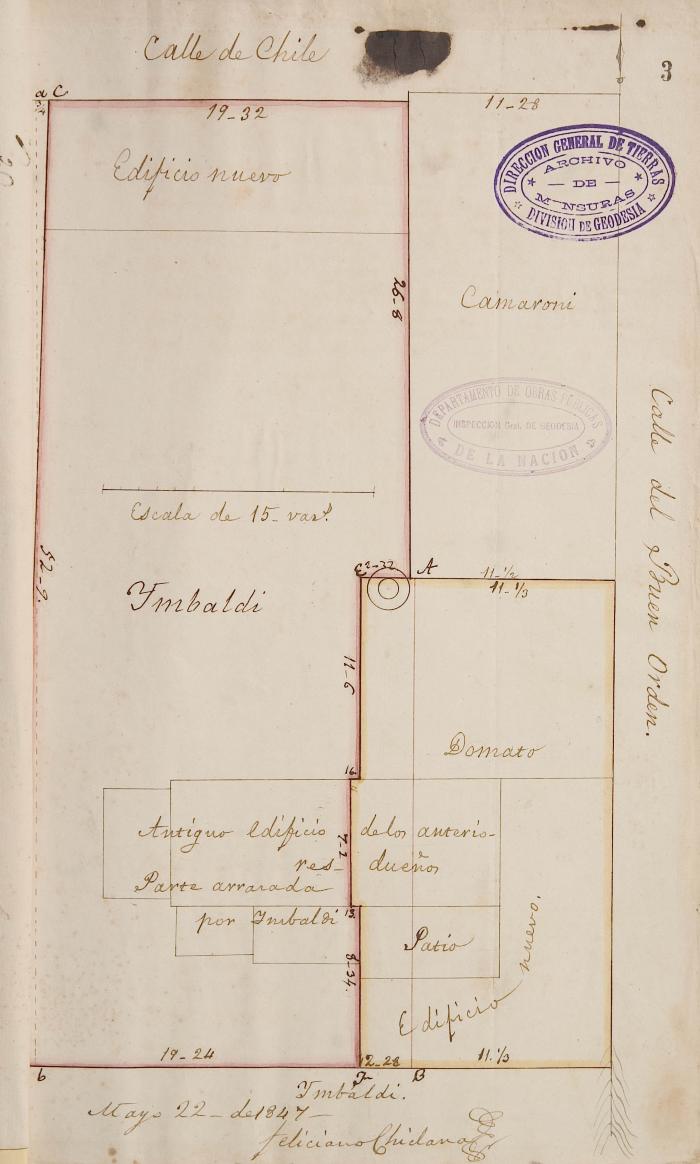 Calle de Chile
3
a C
19-32
11-28
DIRECCION GENERAL DE TIERRAS
ARCHIVO
DE
M NSURAS
DIVISION DE GEODESIA
Edificio nuevo
26-8
Camaroni
DEPARTAMENTO DE OBRAS PUBLICAS
INSPECCION Gral. DE GEODESIA
DE LA NACION
Calle del Buen Orden.
Escala de 15- vars.
52-9.
E 2-32 A
11-1/2
11-1/3
Ymbaldi
11-6
Domato
16
Antiguo edificio de los anterio-
res- dueños
7-2
Parte arrasada
por Imbaldi
13
Patio
8-34.
Edificio nuevo.
19-24
12-28
11.1/3
b
F
B
Ymbaldi.
Mayo 22- de 1847-
Feliciano Chiclana